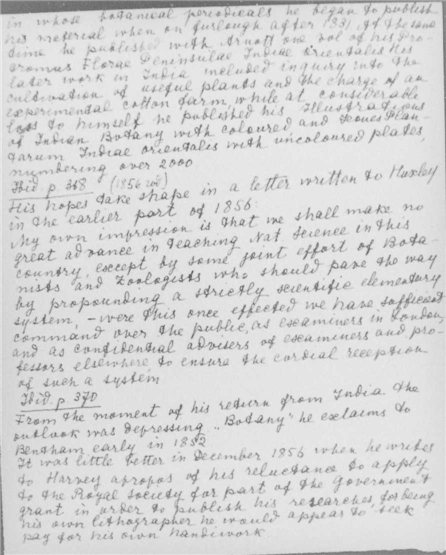 in whose botanical periodicals he began to publish
his material when on furlough after 1831. At the same
time he published with Arnott one vol of his Pro-
dromus Florae Peninsulae Indiae Orientalis His
later work in India included inquiry into the
cultivation of useful plants and the charge of an
experimental cotton farm, while at considerable
loss to himself he published his Illustrations
of Indian Botany with coloured, and Icones Plan-
tarum Indiae orientalis with uncoloured plates,
numbering over 2000
Ibid. p 368 (1856)
His hopes take shape in a letter written to Huxley
in the earlier part of 1856:
My own impression is that we shall make no
great advance in teaching Nat Science in this
country, except by some joint effort of Bota-
nists and Zoologists who should pave the way
by propounding a strictly scientific elementary
system, – were this once effected we have sufficient
command over the public, as examiners in London,
and as confidential advisers of examiners and pro-
fessors elsewhere to ensure the cordial reception
of such a system
Ibid. p 370
From the moment of his return from India the
outlook was depressing „Botany" he exclaims to
Bentham early in 1852
It was little better in December 1856 when he writes
to Harvey apropos of his reluctance to apply
to the Royal Society for part of the Government
grant in order to publish his researches, for being
his own lithographer he would appear to seek
pay for his own handiwork